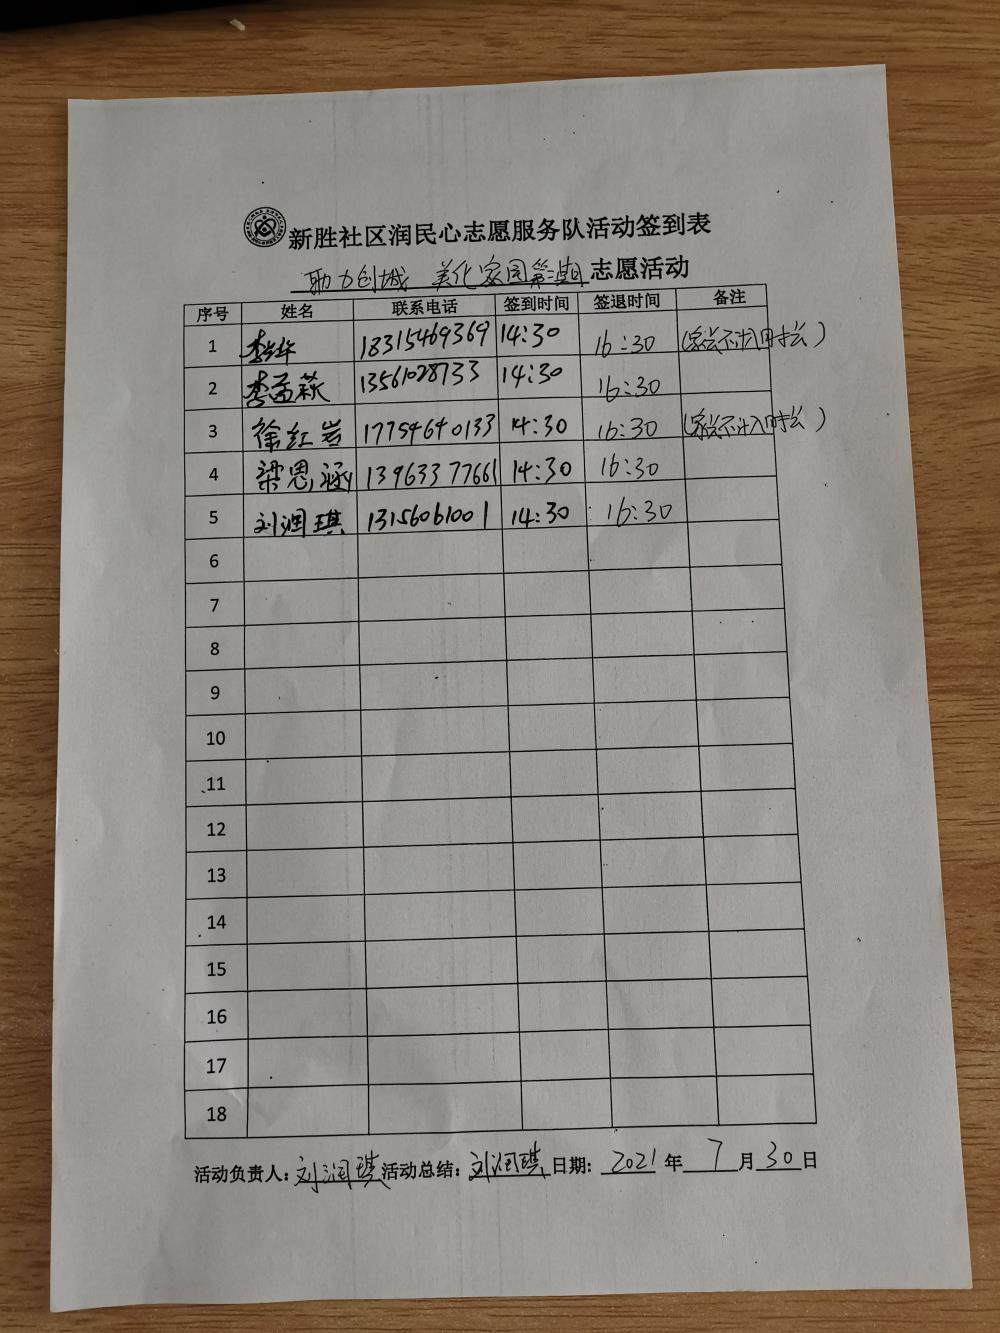 新胜社区润民心志愿服务队活动签到表
助力创城 美化家园第三期志愿活动
序号 姓名 联系电话 签到时间 签退时间 备注
1 李华 18315469369 14:30 16:30 (家长不计入时长)
2 李孟萩 13561028733 14:30 16:30
3 徐红岩 17754640133 14:30 16:30 (家长不计入时长)
4 梁思涵 13963377661 14:30 16:30
5 刘润琪 13156061001 14:30 16:30
6
7
8
9
10
11
12
13
14
15
16
17
18
活动负责人:刘润琪 活动总结:刘润琪 日期: 2021 年 7 月 30 日